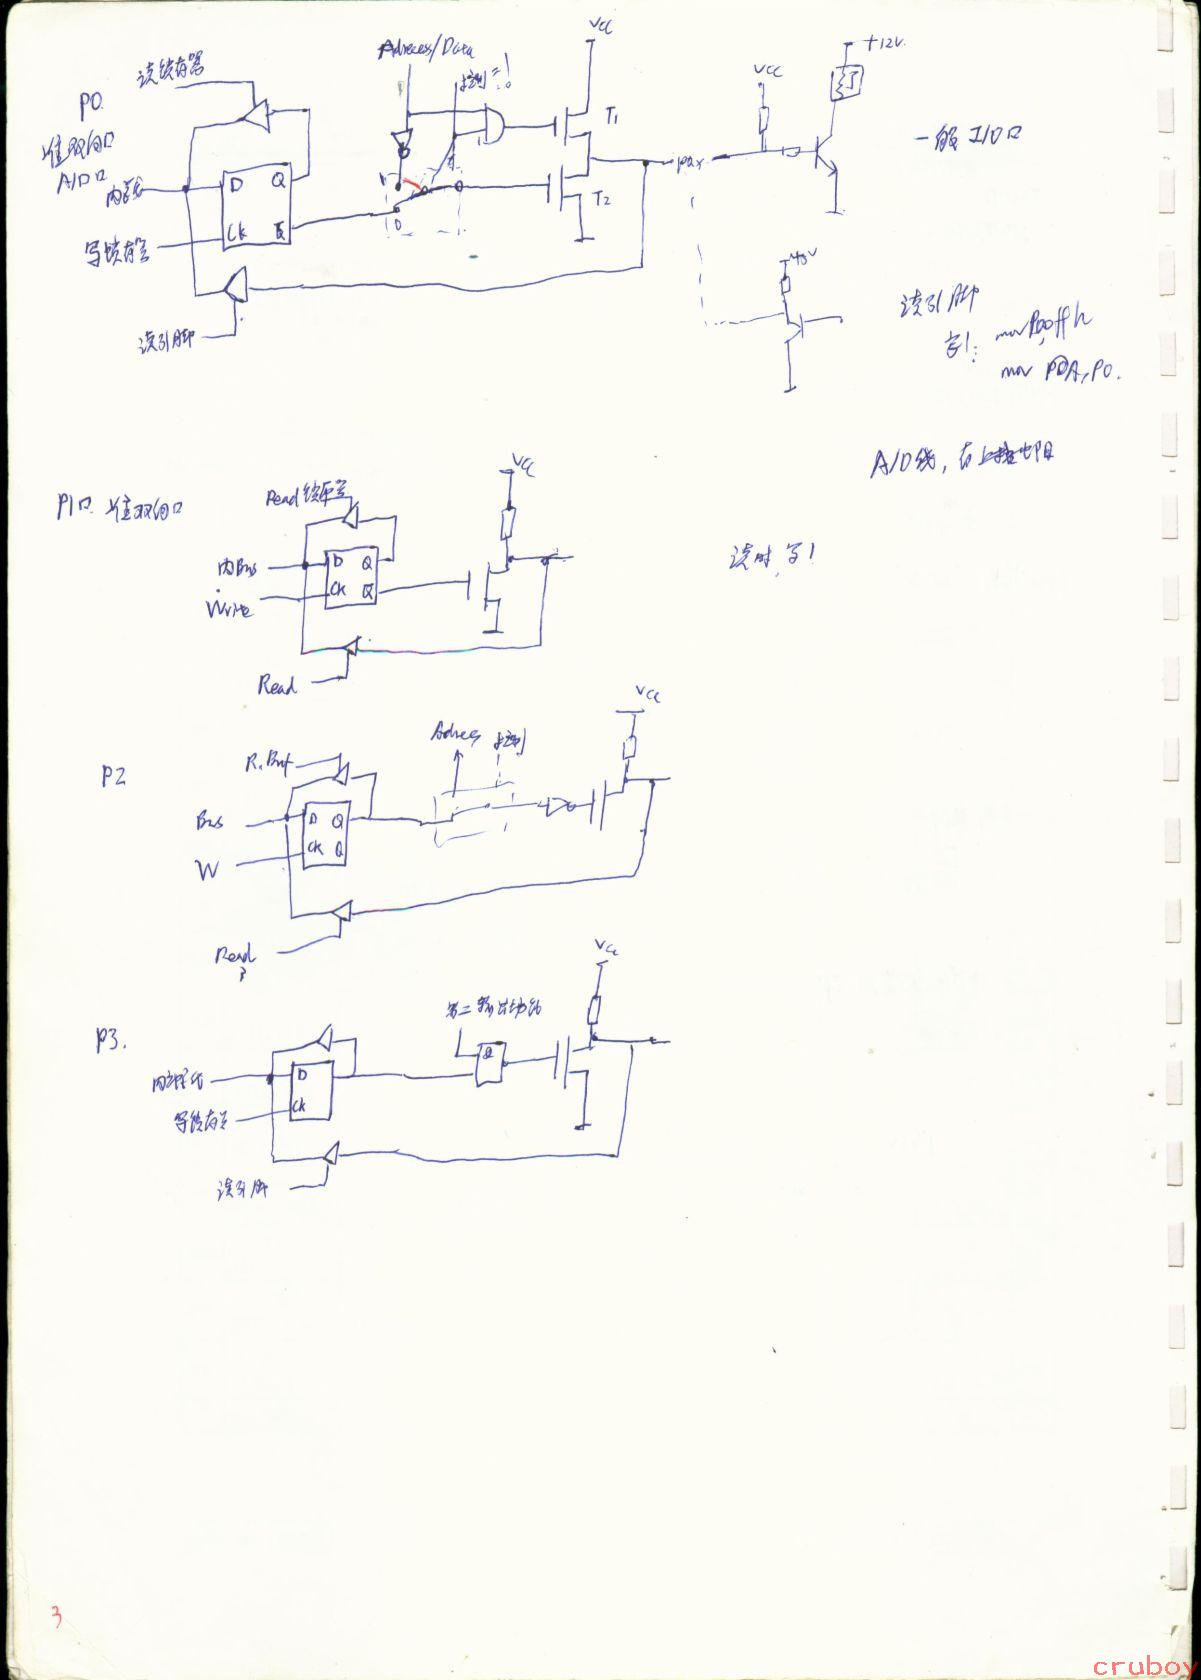 P0
准双向口
A/D口
读锁存器
内部线
写锁存器
读引脚
D Q
CK Q̅
Adress/Data
控制=!
1
0
VCC
T1
T2
P0X
VCC
+12V.
一般I/O口
+5V
读引脚
写1: mov P0,0ffh
mov A,P0.
A/D线,
P1口. 准双向口
Read锁存器
内Bus
Write
D Q
CK Q̅
Read
VCC
读时,写1
P2
R.Buf
Bus
W
D Q
CK Q
Read
Adress 控制
VCC
P3.
内部线
写锁存器
读引脚
D
CK
第二输出功能
&
VCC
3
cruboy